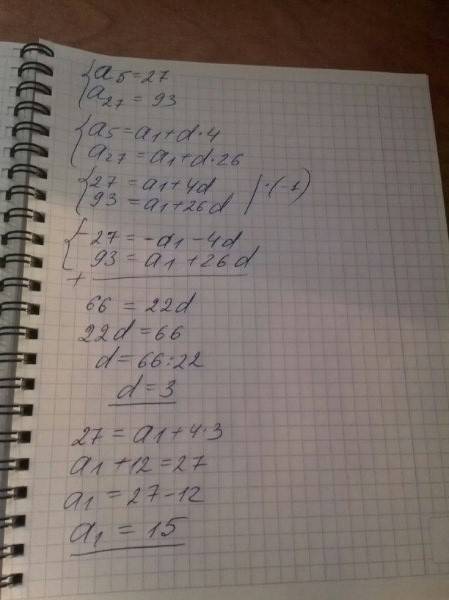 {a₅=27
a₂₇ = 93
{a₅=a₁+d·4
a₂₇=a₁+d·26
{27=a₁+4d
93=a₁+26d |·(-1)
{-27=-a₁-4d
93=a₁+26d
+
66=22d
22d=66
d=66:22
d=3
27=a₁+4·3
a₁+12=27
a₁=27-12
a₁=15